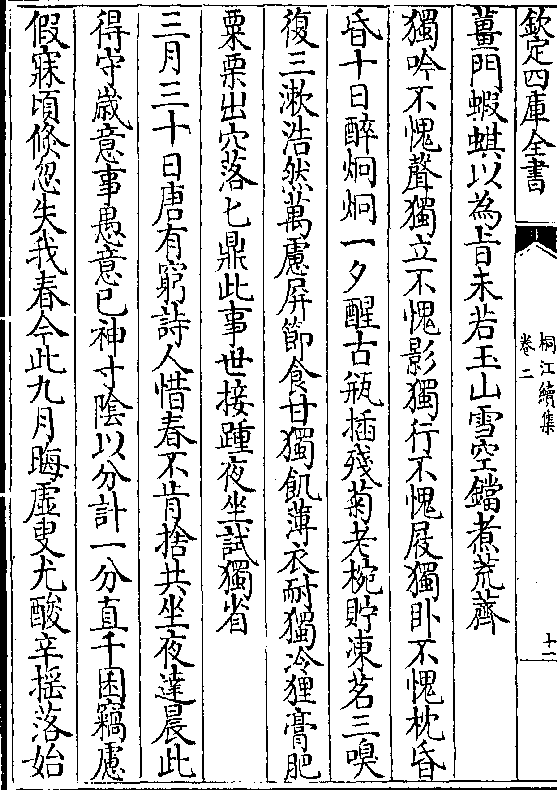 欽定四庫全書
桐江續集
卷二
十二
薑門蝦蜞以為旨未若玉山雪空鐺煮荒薺
獨吟不愧聲獨立不愧影獨行不愧屐獨卧不愧枕昏
昏十日醉炯炯一夕醒古瓶插殘菊老椀貯凍茗三嗅
復三漱浩然萬慮屏節食甘獨飢薄衣耐獨冷狸膏肥
粟栗出穴落匕鼎此事世接踵夜坐試獨省
三月三十日唐有窮詩人惜春不肯捨共坐夜達晨此
得守歲意事愚意已神寸陰以分計一分直千囷竊慮
假寐頃倏忽失我春今此九月晦虛叟尤酸辛揺落始